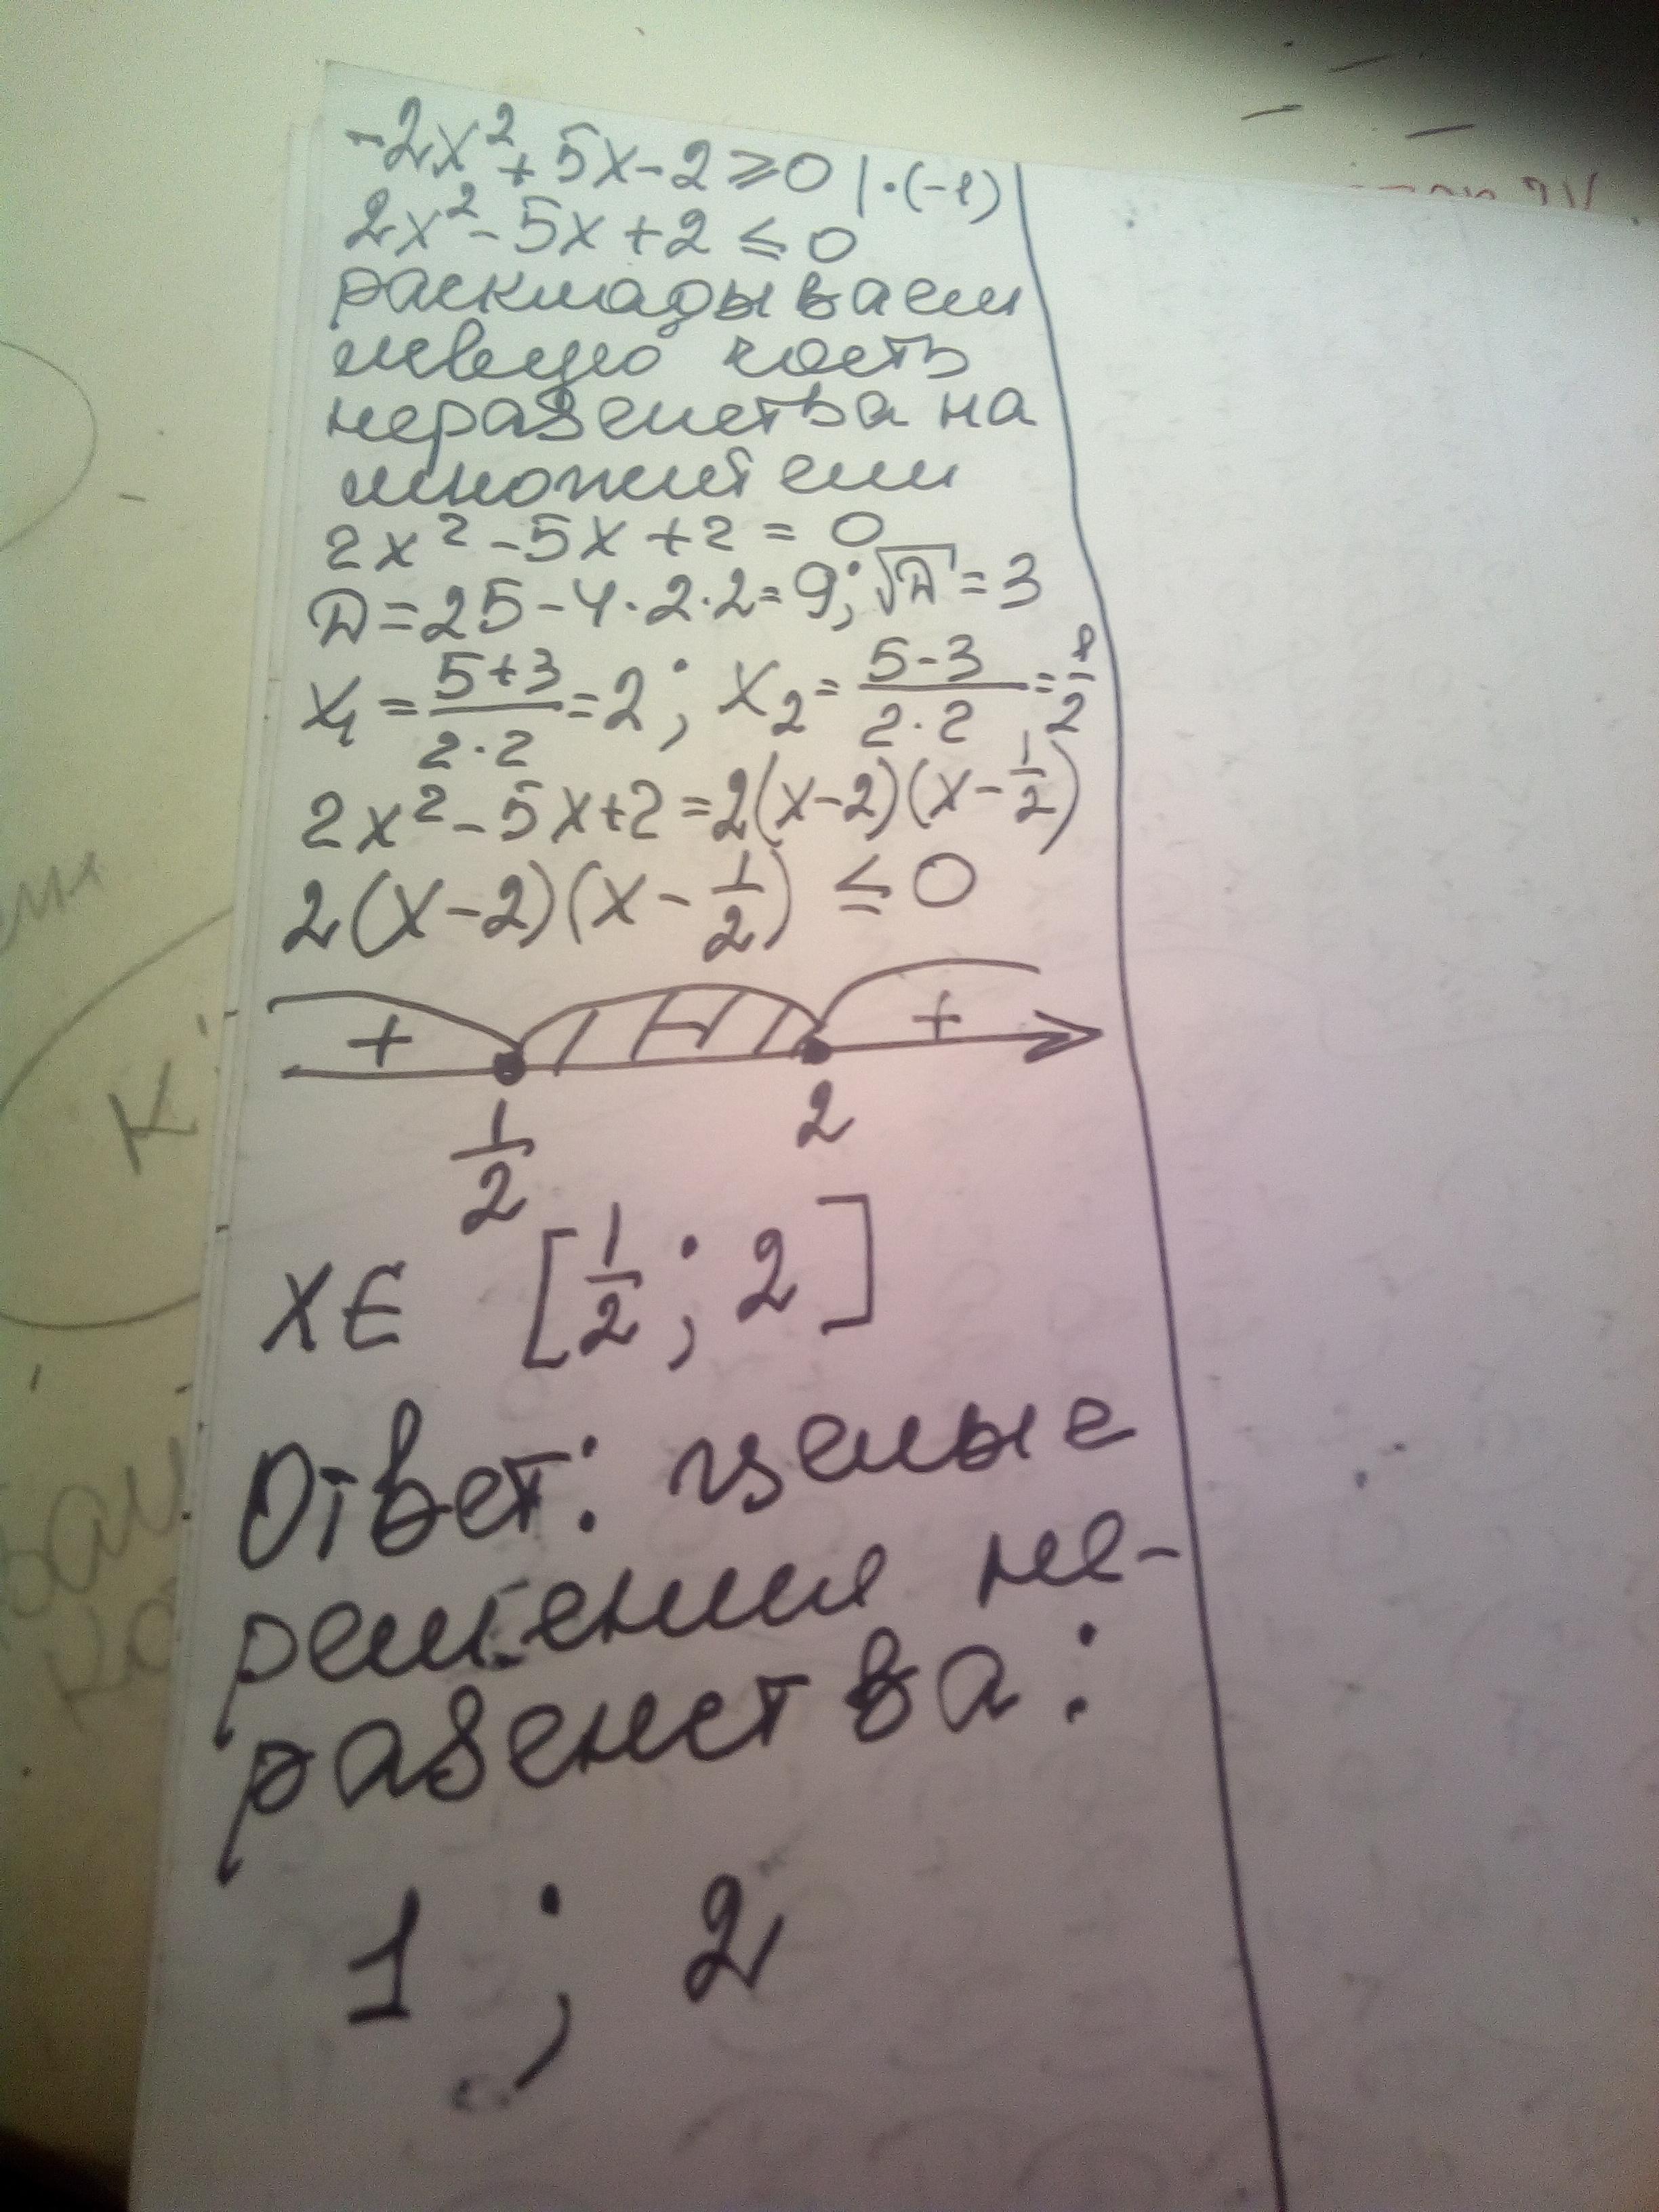 -2x²+5x-2≥0 |·(-1)
2x²-5x+2≤0
раскладываем
левую часть
неравенства на
множители
2x²-5x+2=0
D=25-4·2·2=9; √D=3
x₁=(5+3)/(2·2)=2; x₂=(5-3)/(2·2)=1/2
2x²-5x+2=2(x-2)(x-1/2)
2(x-2)(x-1/2)≤0
+ - +
1/2 2
x∈ [1/2; 2]
Ответ: целые
решения не-
равенства:
1 ; 2